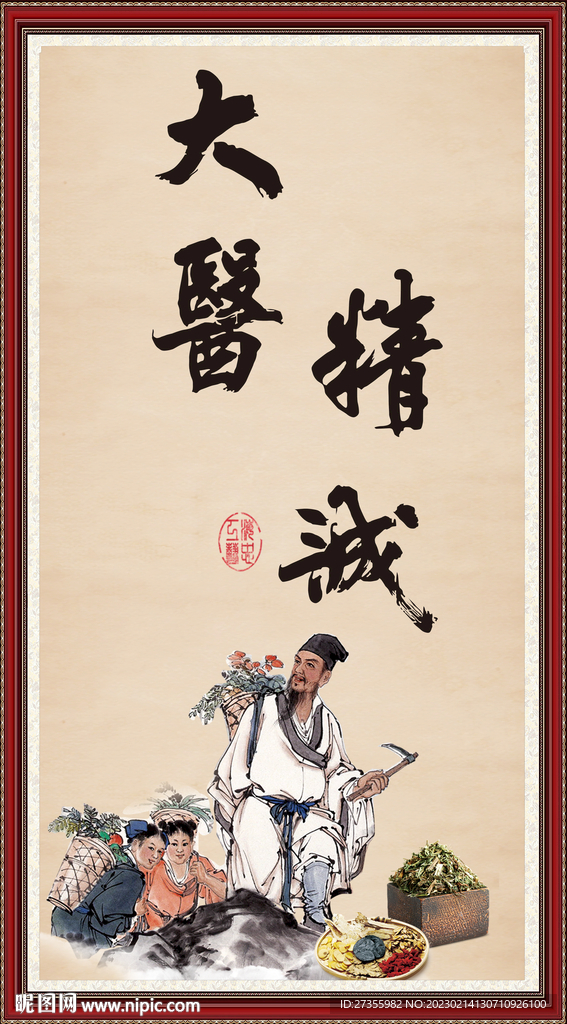 大
醫
精
誠
昵图网 www.nipic.com
ID:27355982 NO:20230214130710926100